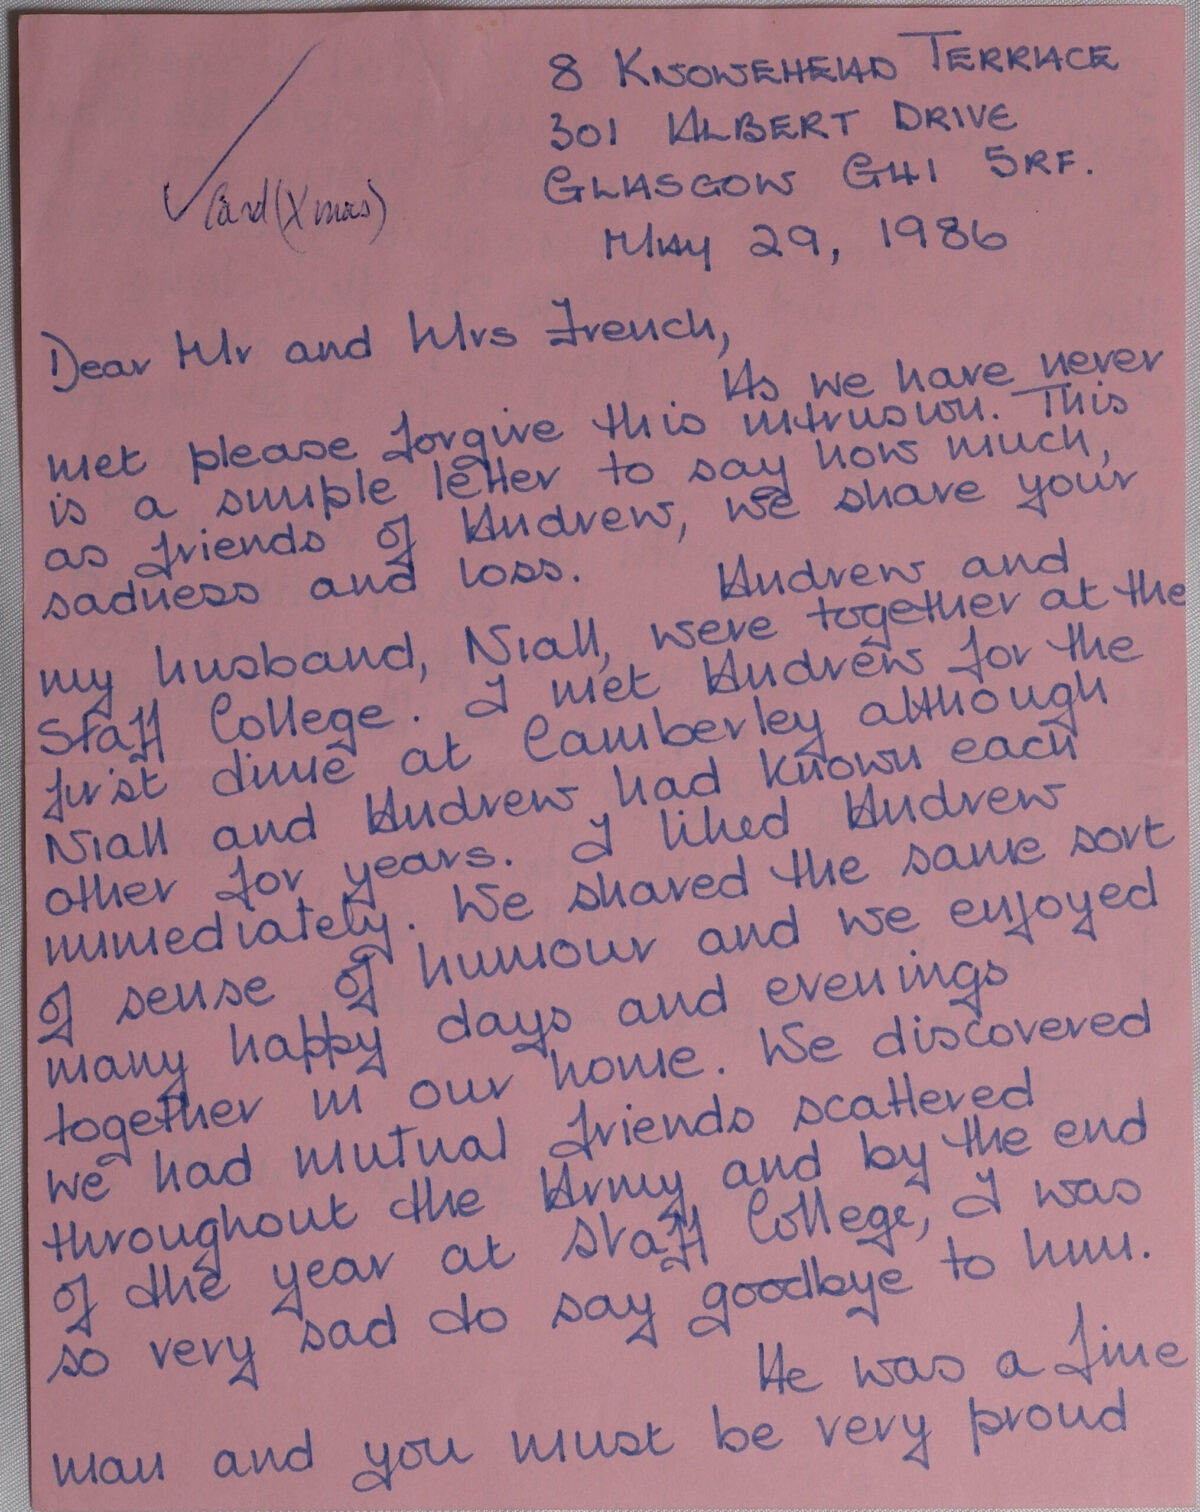 8 KNOWEHEAD TERRACE
301 ALBERT DRIVE
GLASGOW G41 5RF.
MAY 29, 1986
Card (Xmas)
Dear Mr and Mrs French,
As we have never
met please forgive this intrusion. This
is a simple letter to say how much,
as friends of Andrew, we share your
sadness and loss. Andrew and
my husband, Niall, were together at the
Staff College. I met Andrew for the
first time at Camberley although
Niall and Andrew had known each
other for years. I liked Andrew
immediately. We shared the same sort
of sense of humour and we enjoyed
many happy days and evenings
together in our home. We discovered
we had mutual friends scattered
throughout the Army and by the end
of the year at Staff College, I was
so very sad to say goodbye to him.
He was a fine
man and you must be very proud